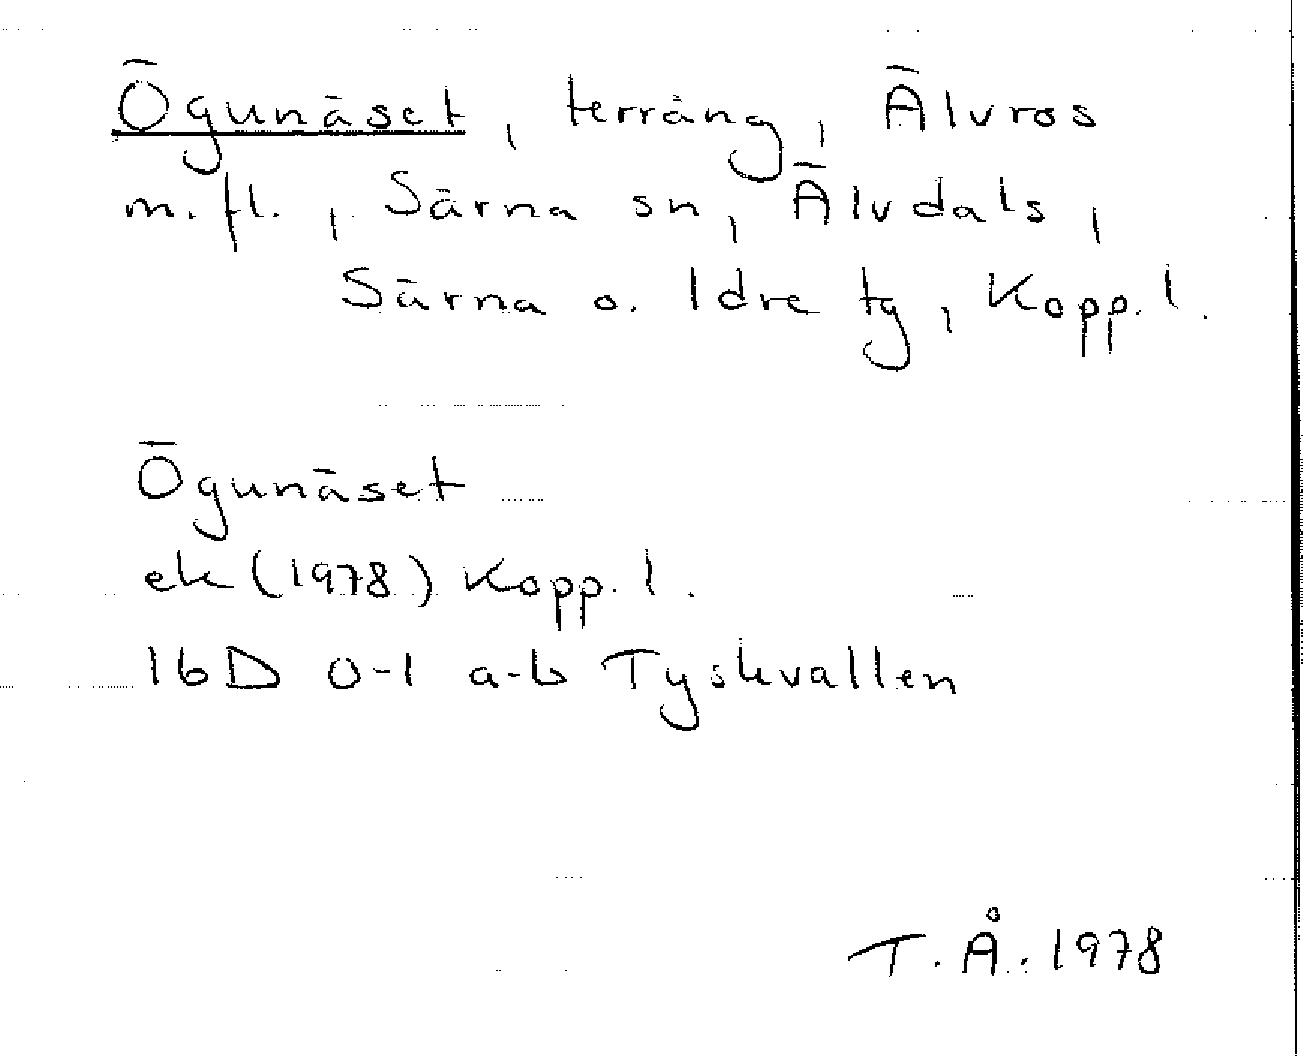 Ögunäset, terräng, Älvros
m.fl., Särna sn, Älvdals,
Särna o. Idre tg, Kopp. l.
Ögunäset
ek (1978) Kopp. l.
16D 0-1 a-b Tyskvallen
T. Å. 1978